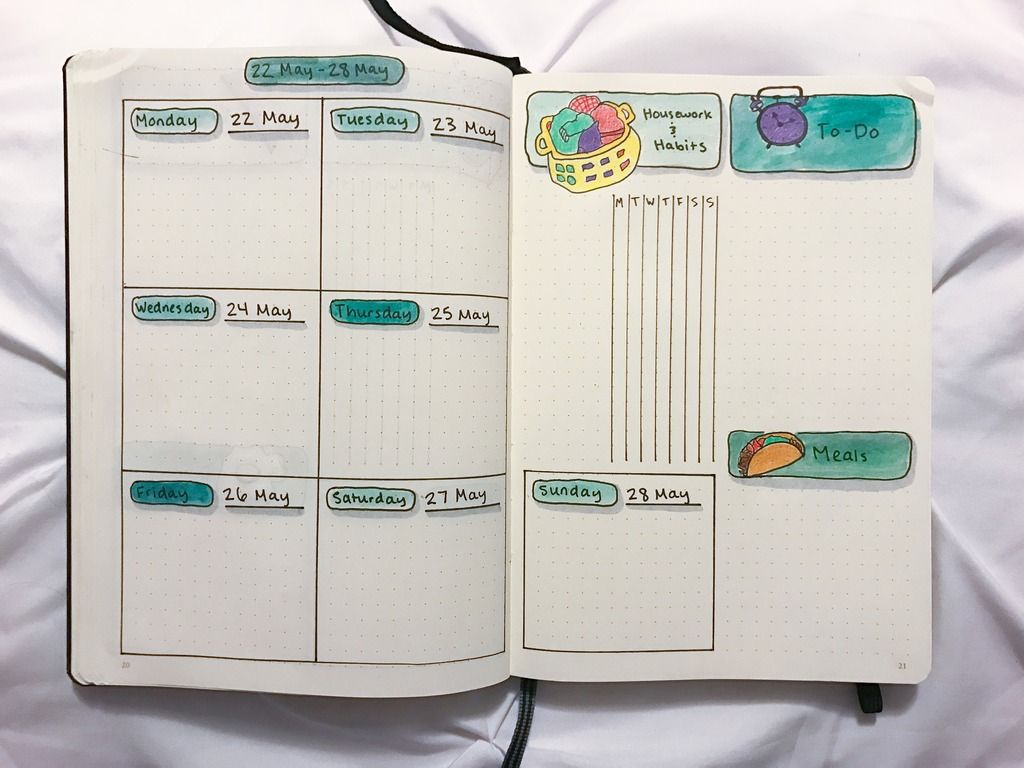 22 May - 28 May
Monday 22 May
Tuesday 23 May
Wednesday 24 May
Thursday 25 May
Friday 26 May
Saturday 27 May
20
Housework
&
Habits
M T W T F S S
To-Do
Meals
Sunday 28 May
21